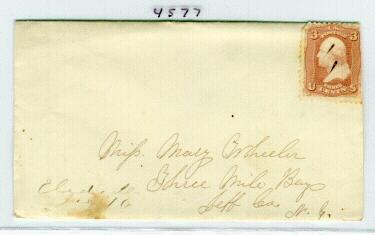 4577
3 3
U CENTS S
Miss. Mary Wheeler
Three Mile Bay
Jeff Co.
N.Y.